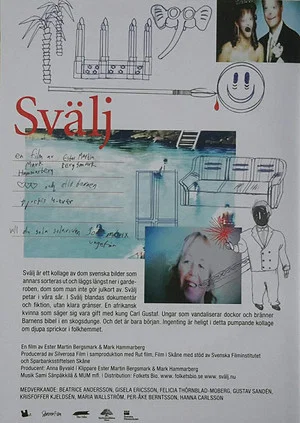 Svälj
en film av Ester Martin
Mark Bergsmark
Hammarberg
Svälj är ett kollage av dom svenska bilder som
annars sorteras ut och läggs längst ner i garde-
roben, dom som man inte gör julkort av. Svälj
petar i våra sår. I Svälj blandas dokumentär
och fiktion, utan klara gränser. En afrikansk
kvinna som säger sig vara gift med kung Carl Gustaf. Ungar som vandaliserar dockor och bränner
Barnens bibel i en skogsdunge. Och det är bara början. Ingenting är heligt i detta pumpande kollage
om djupa sprickor i folkhemmet.
En film av Ester Martin Bergsmark & Mark Hammarberg
Producerad av Silverosa Film i samproduktion med Rut film, Film i Skåne med stöd av Svenska Filminstitutet
och Sparbanksstiftelsen Skåne
Producent: Anna Byvald | Klippare Ester Martin Bergsmark & Mark Hammarberg
Musik Sami Sänpäkkilä & MUM mfl. | Distribution: Folkets Bio. www.folketsbio.se www.svälj.nu
MEDVERKANDE: BEATRICE ANDERSSON, GISELA ERICSSON, FELICIA THÖRNBLAD-MOBERG, GUSTAV SANDÉN,
KRISFOFFER KJELDSÉN, MARIA WALLSTRÖM, PER-ÅKE BERNTSSON, HANNA CARLSSON